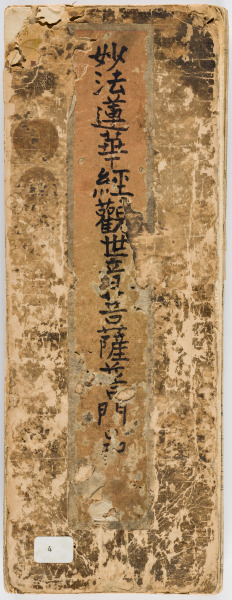 妙法蓮華經觀世音菩薩普門品
4